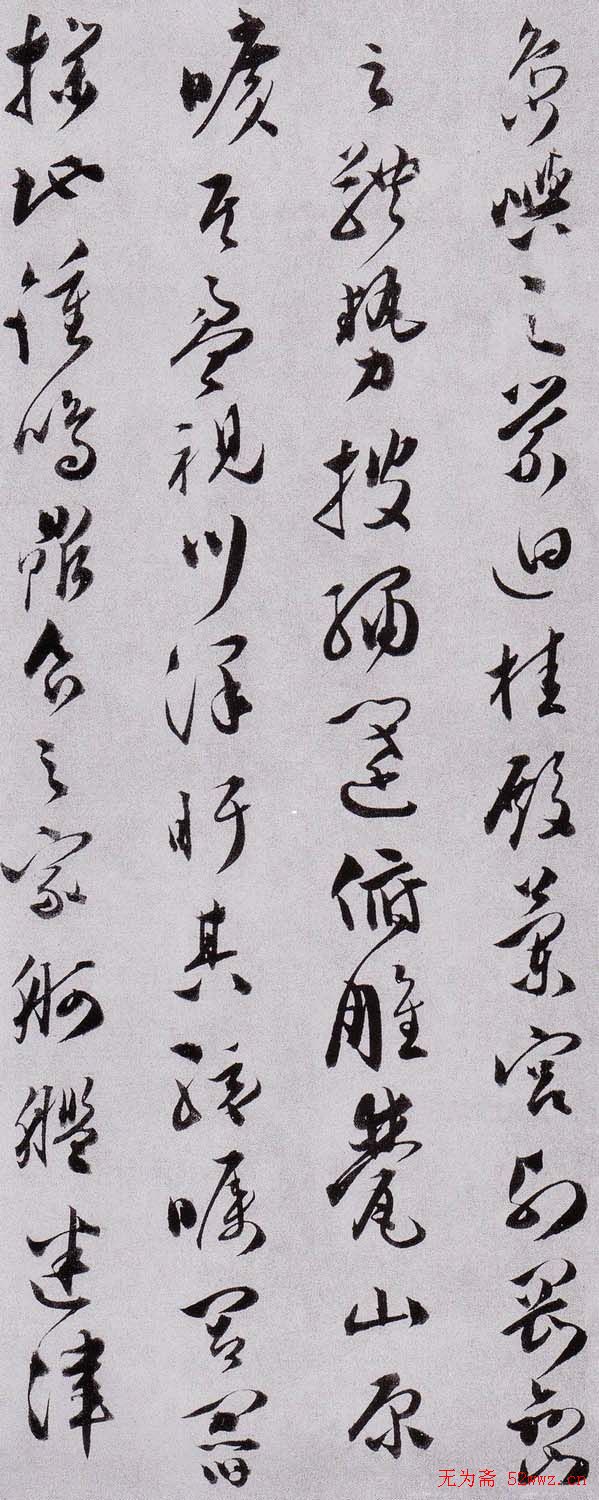 島嶼之縈迴桂殿蘭宮列岡巒
之體勢披繡闥俯雕甍山原
曠其盈視川澤盱其駭矚閭閻
撲地鍾鳴鼎食之家舸艦迷津
无为斋 52wwz.cn